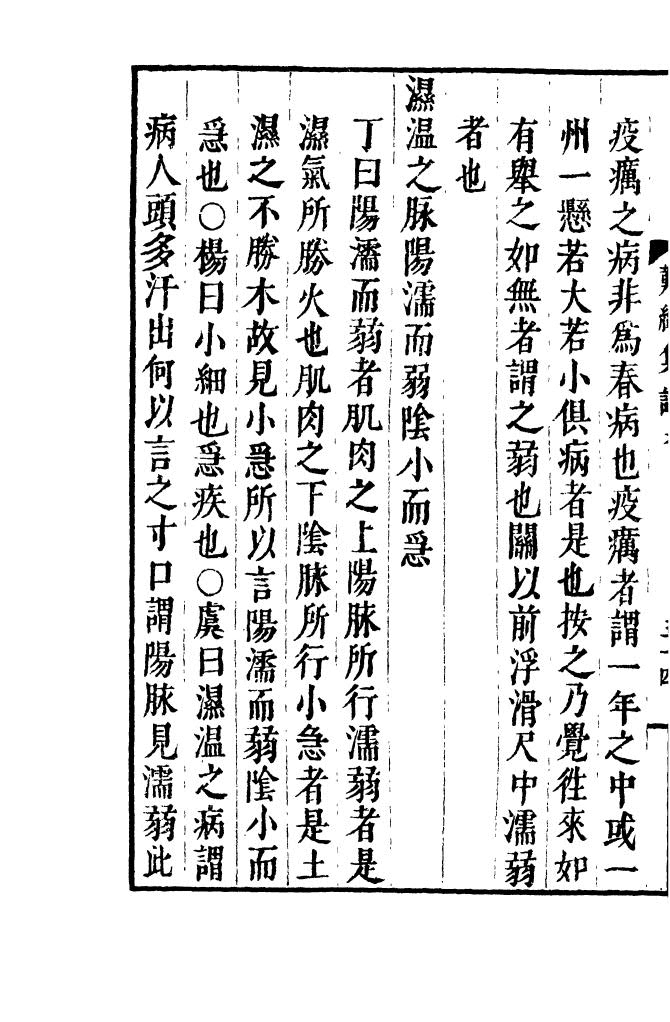 難經集註
疫癘之病非爲春病也疫癘者謂一年之中或一
州一懸若大若小俱病者是也按之乃覺徃來如
有舉之如無者謂之弱也關以前浮滑尺中濡弱
者也
濕温之脉陽濡而弱陰小而急
丁曰陽濡而弱者肌肉之上陽脉所行濡弱者是
濕氣所勝火也肌肉之下陰脉所行小急者是土
濕之不勝木故見小急所以言陽濡而弱陰小而
急也○楊曰小細也急疾也○虞曰濕温之病謂
病人頭多汗出何以言之寸口謂陽脉見濡弱此